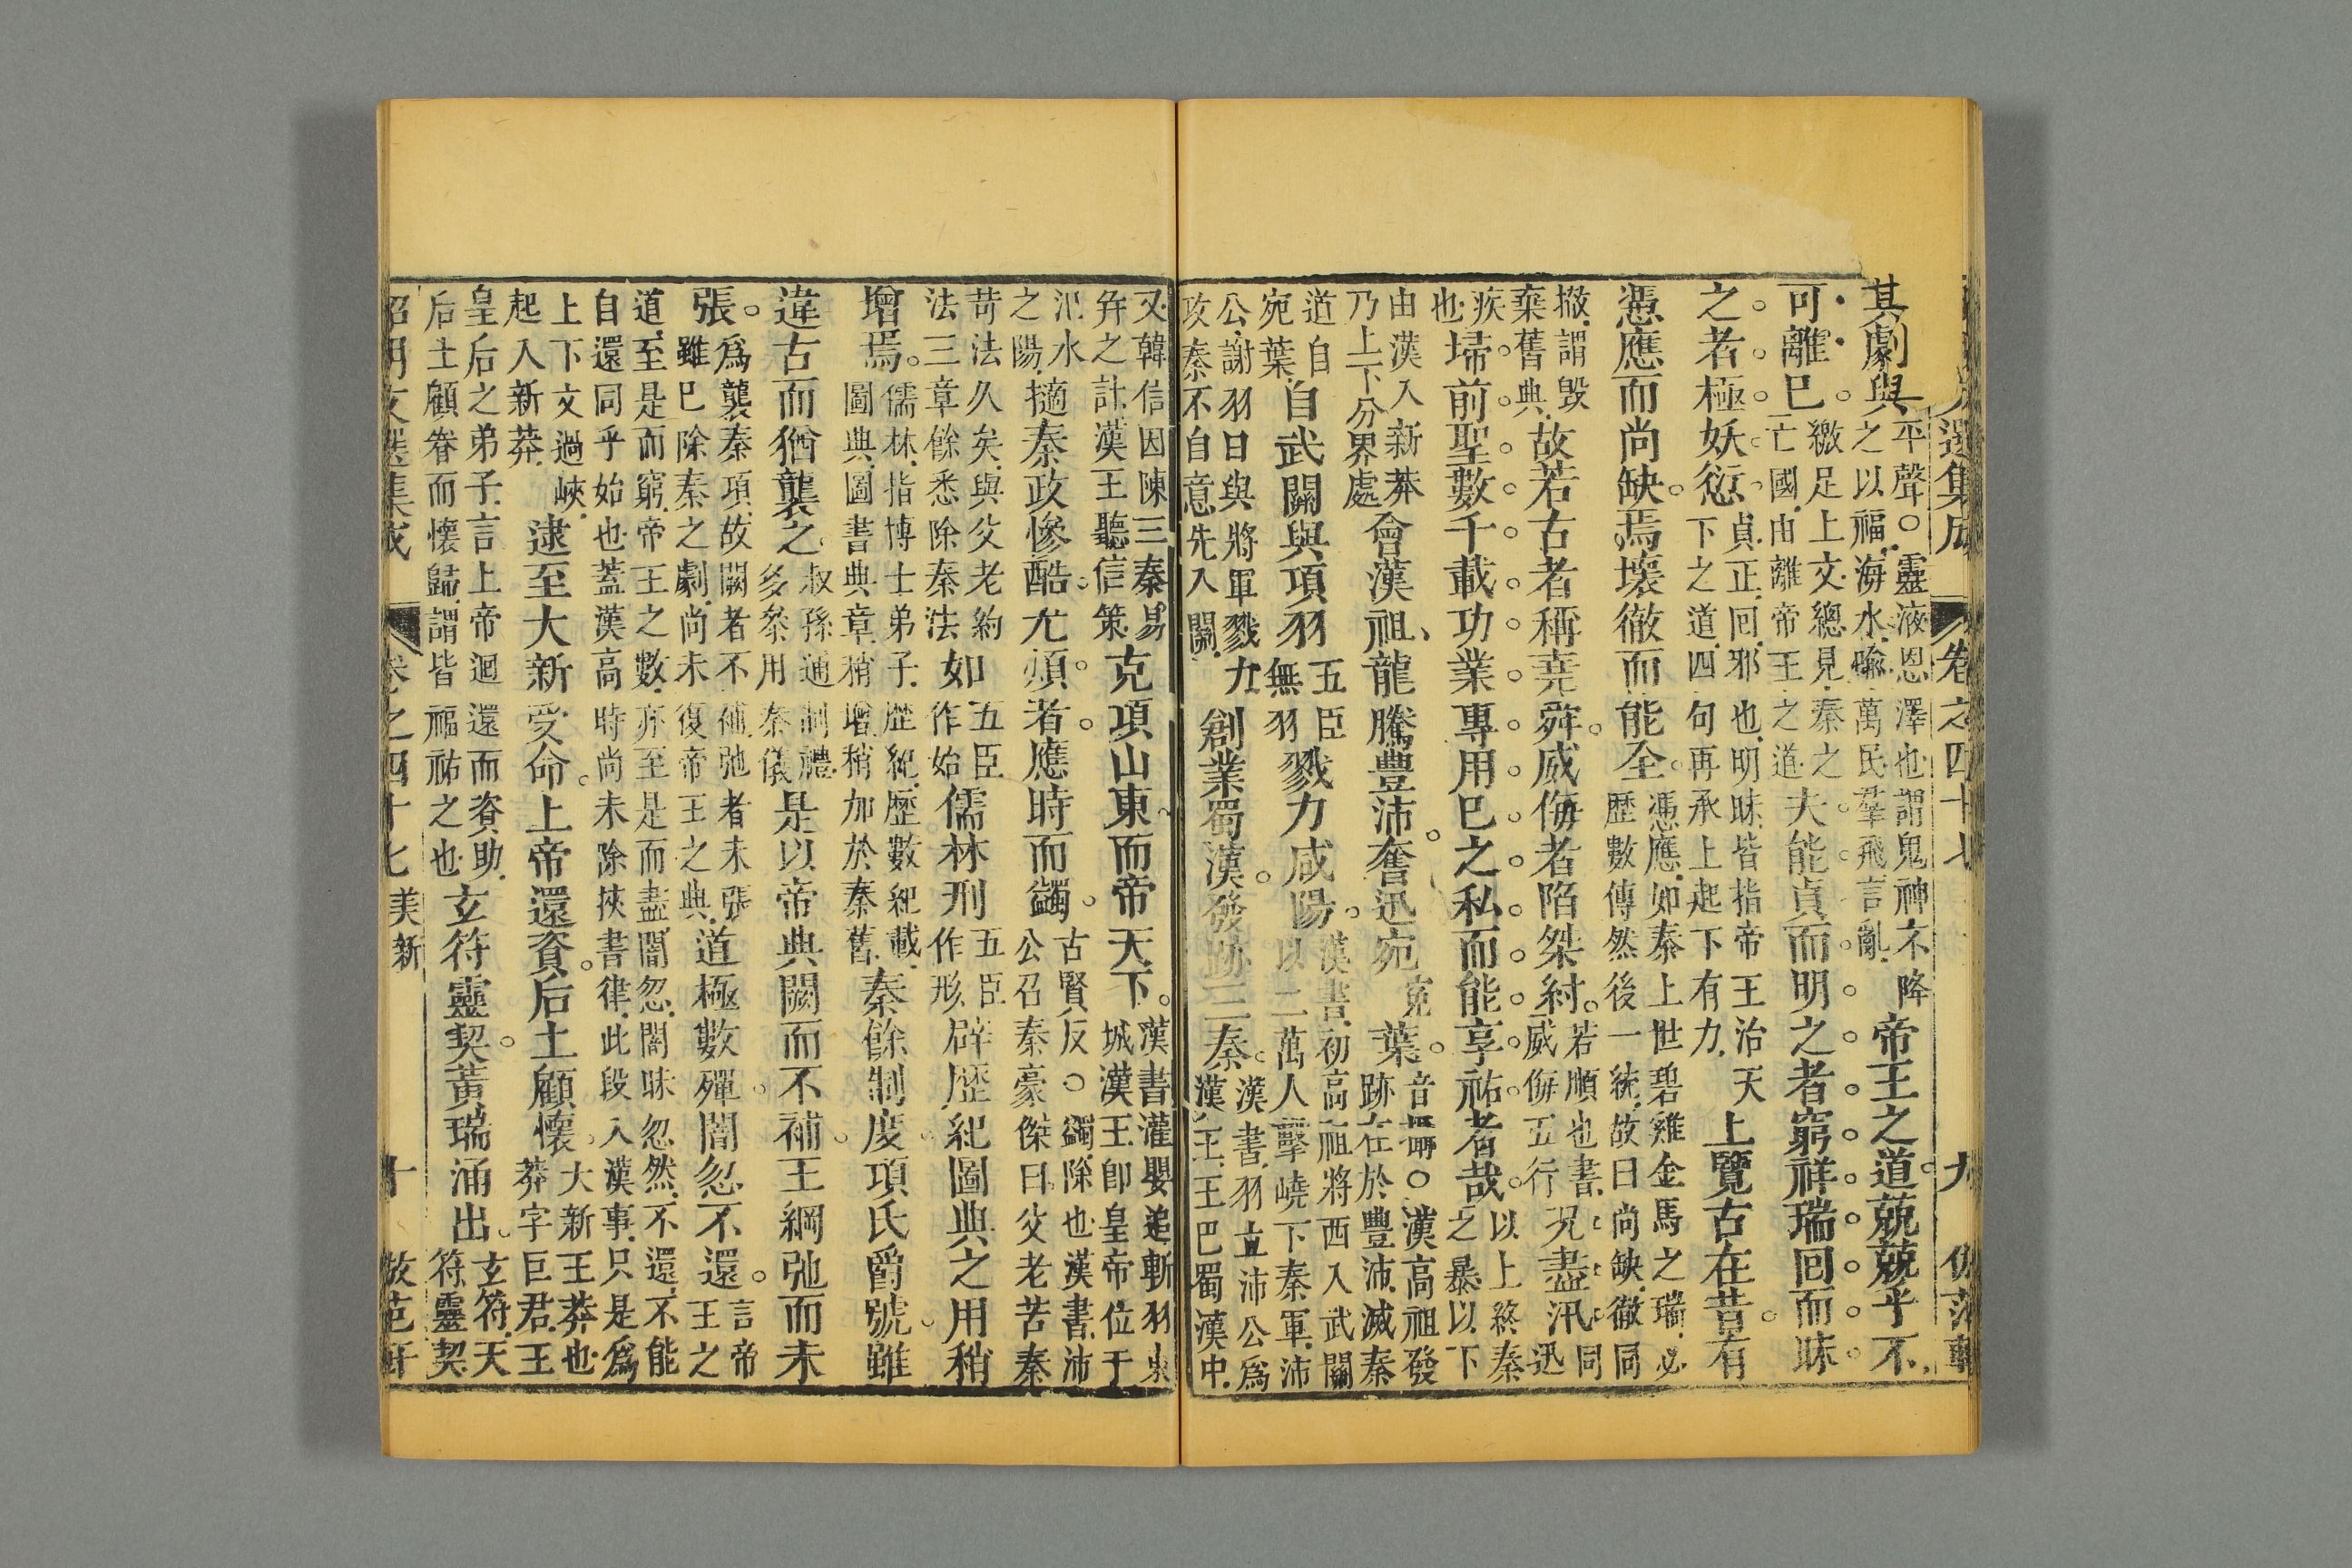 選集成 卷之四十七 九
其劇與平聲○靈液恩澤也謂鬼神不降
之以福海水喻萬民羣飛言亂帝王之道兢兢乎不
可離已繳足上文總見秦之
亡國由離帝王之道夫能貞而明之者窮祥瑞回而昧
之者極妖愆貞正回邪也明昧皆指帝王治天
下之道四句再承上起下有力上覽古在昔有
憑應而尚缺焉壞徹而能全憑應如秦上世碧雞金馬之瑞必
歷數傳然後一統故曰尚缺徹同
撤謂毀
棄舊典故若古者稱堯舜威侮者陷桀紂若順也書
威侮五行況盡汛同
迅
疾
也埽前聖數千載功業專用巳之私而能享祐者哉以上終秦
之暴以下
由漢入新莽
乃上下分界處會漢祖龍騰豐沛奮迅宛葉音攝○漢高祖發
跡在於豐沛滅秦
道自
宛葉自武關與項羽五臣
無羽戮力咸陽漢書初高祖將西入武關
以二萬人擊嶢下秦軍沛
公謝羽曰與將軍戮力
攻秦不自意先入關創業蜀漢發跡三秦漢書羽立沛公為
漢王王巴蜀漢中
又韓信因陳三秦易
幷之計漢王聽信策克項山東而帝天下漢書灌嬰追斬羽東
城漢王卽皇帝位于
汜水
之陽擿秦政慘酷尤煩者應時而蠲古賢反○蠲除也漢書沛
公召秦豪傑曰父老苦秦
苛法久矣與父老約
法三章餘悉除秦法如五臣
作始儒林刑五臣
作形辟歷紀圖典之用稍
增焉儒林指博士弟子歷紀歷數紀載
圖典圖書典章稍增稍加於秦舊秦餘制度項氏爵號雖
違古而猶襲之叔孫通制禮
多參用秦儀是以帝典闕而不補王綱弛而未
張為襲秦項故闕者不補弛者未張
雖已除秦之劇尚未復帝王之典道極數殫闇忽不還言帝
王之
道至是而窮帝王之數亦至是而盡闇忽闇昧忽然不還不能
自還同乎始也蓋漢高時尚未除挾書律此段入漢事只是為
上下文過峽
起入新莽逮至大新受命上帝還資后土顧懷大新王莽也
莽字巨君王
皇后之弟子言上帝迴還而資助
后土顧眷而懷歸謂皆福祐之也玄符靈契黃瑞涌出玄符天
符靈契
昭明文選集成 卷之四十七 美新 十 倣范軒